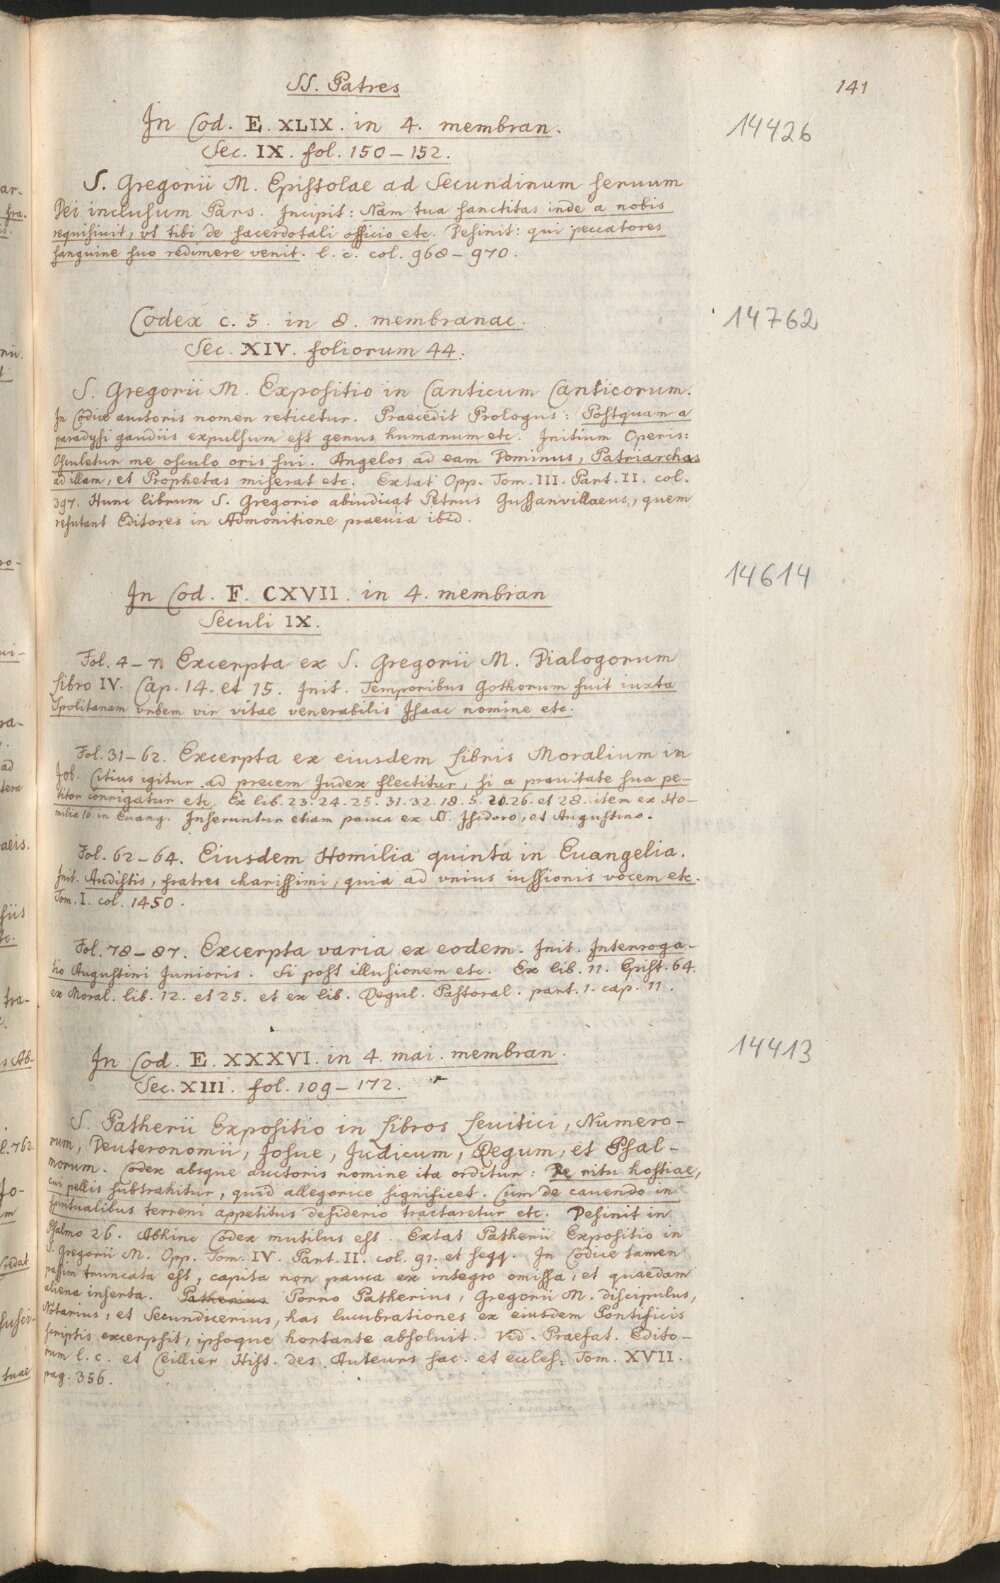 SS. Patres
141
In Cod. E. XLIX. in 4. membran.
14426
Sec. IX. fol. 150–152.
S. Gregorii M. Epistolae ad Secundinum seruum
Dei inclusum Pars. Incipit: Nam tua sanctitas inde a nobis
requisiuit, vt tibi de sacerdotali officio etc. Desinit: qui peccatores
sanguine suo redimere venit. l. c. col. 968–970.
Codex c. 5. in 8. membranac.
14762
Sec. XIV. foliorum 44.
S. Gregorii M. Expositio in Canticum Canticorum.
In Codice auctoris nomen reticetur. Praecedit Prologus: Postquam a
paradysi gaudiis expulsum est genus humanum etc. Initium Operis:
Osculetur me osculo oris sui. Angelos ad eam Dominus, Patriarchas
ad illam, et Prophetas miserat etc. Extat Opp. Tom. III. Part. II. col.
397. Hunc librum S. Gregorio abiudicat Petrus Gussanvillaeus, quem
refutant Editores in Admonitione praeuia ibid.
In Cod. F. CXVII. in 4. membran
14614
Seculi IX.
Fol. 4–7 Excerpta ex S. Gregorii M. Dialogorum
Libro IV. Cap. 14. et 15. Init. Temporibus Gothorum fuit iuxta
Spolitanam vrbem vir vitae venerabilis Isaac nomine etc.
Fol. 31–62. Excerpta ex eiusdem Libris Moralium in
Job. Citius igitur ad precem Judex flectitur, si a prauitate sua pe-
titor corrigatur etc. Ex lib. 23. 24. 25. 31. 32. 18. 5. 20. 26. et 28. item ex Ho-
milia 16. in Euang. Inseruntur etiam pauca ex SS. Isidoro, et Augustino.
Fol. 62–64. Eiusdem Homilia quinta in Euangelia.
Init. Audistis, fratres charissimi, quia ad vnius iussionis vocem etc.
Tom. I. col. 1450.
Fol. 78–87. Excerpta varia ex eodem. Init. Interroga-
tio Augustini Junioris. Si post illusionem etc. Ex lib. 11. Epist. 64.
ex Moral. lib. 12. et 25. et ex lib. Regul. Pastoral. part. 1. cap. 11.
In Cod. E. XXXVI. in 4. mai. membran.
14413
Sec. XIII. fol. 109–172.
S. Patherii Expositio in Libros Leuitici, Numero-
rum, Deuteronomii, Josue, Judicum, Regum, et Psal-
morum. Codex absque auctoris nomine ita orditur: De ritu hostiae,
cui pellis subtrahitur, quid allegorice significet. Cum de cauendo in
spiritualibus terreni appetitus desiderio tractaretur etc. Desinit in
Psalmo 26. Abhinc Codex mutilus est. Extat Patherii Expositio in
S. Gregorii M. Opp. Tom. IV. Part. II. col. 91. et seqq. In Codice tamen
passim truncata est, capita non pauca ex integro omissa, et quaedam
aliena inserta. Patherius Porro Patherius, Gregorii M. discipulus,
Notarius, et Secundicerius, has lucubrationes ex eiusdem Pontificis
scriptis excerpsit, ipsoque hortante absoluit. Vid. Praefat. Edito-
rum l. c. et Ceillier Hist. des Auteurs sac. et eccles. Tom. XVII.
pag. 356.